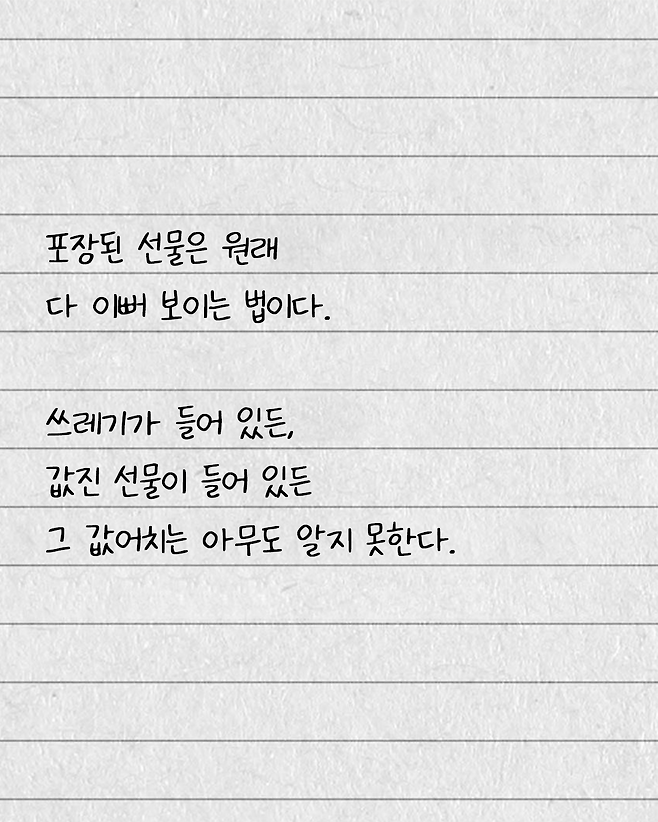 포장된 선물은 원래
다 이뻐 보이는 법이다.
쓰레기가 들어 있든,
값진 선물이 들어 있든
그 값어치는 아무도 알지 못한다.